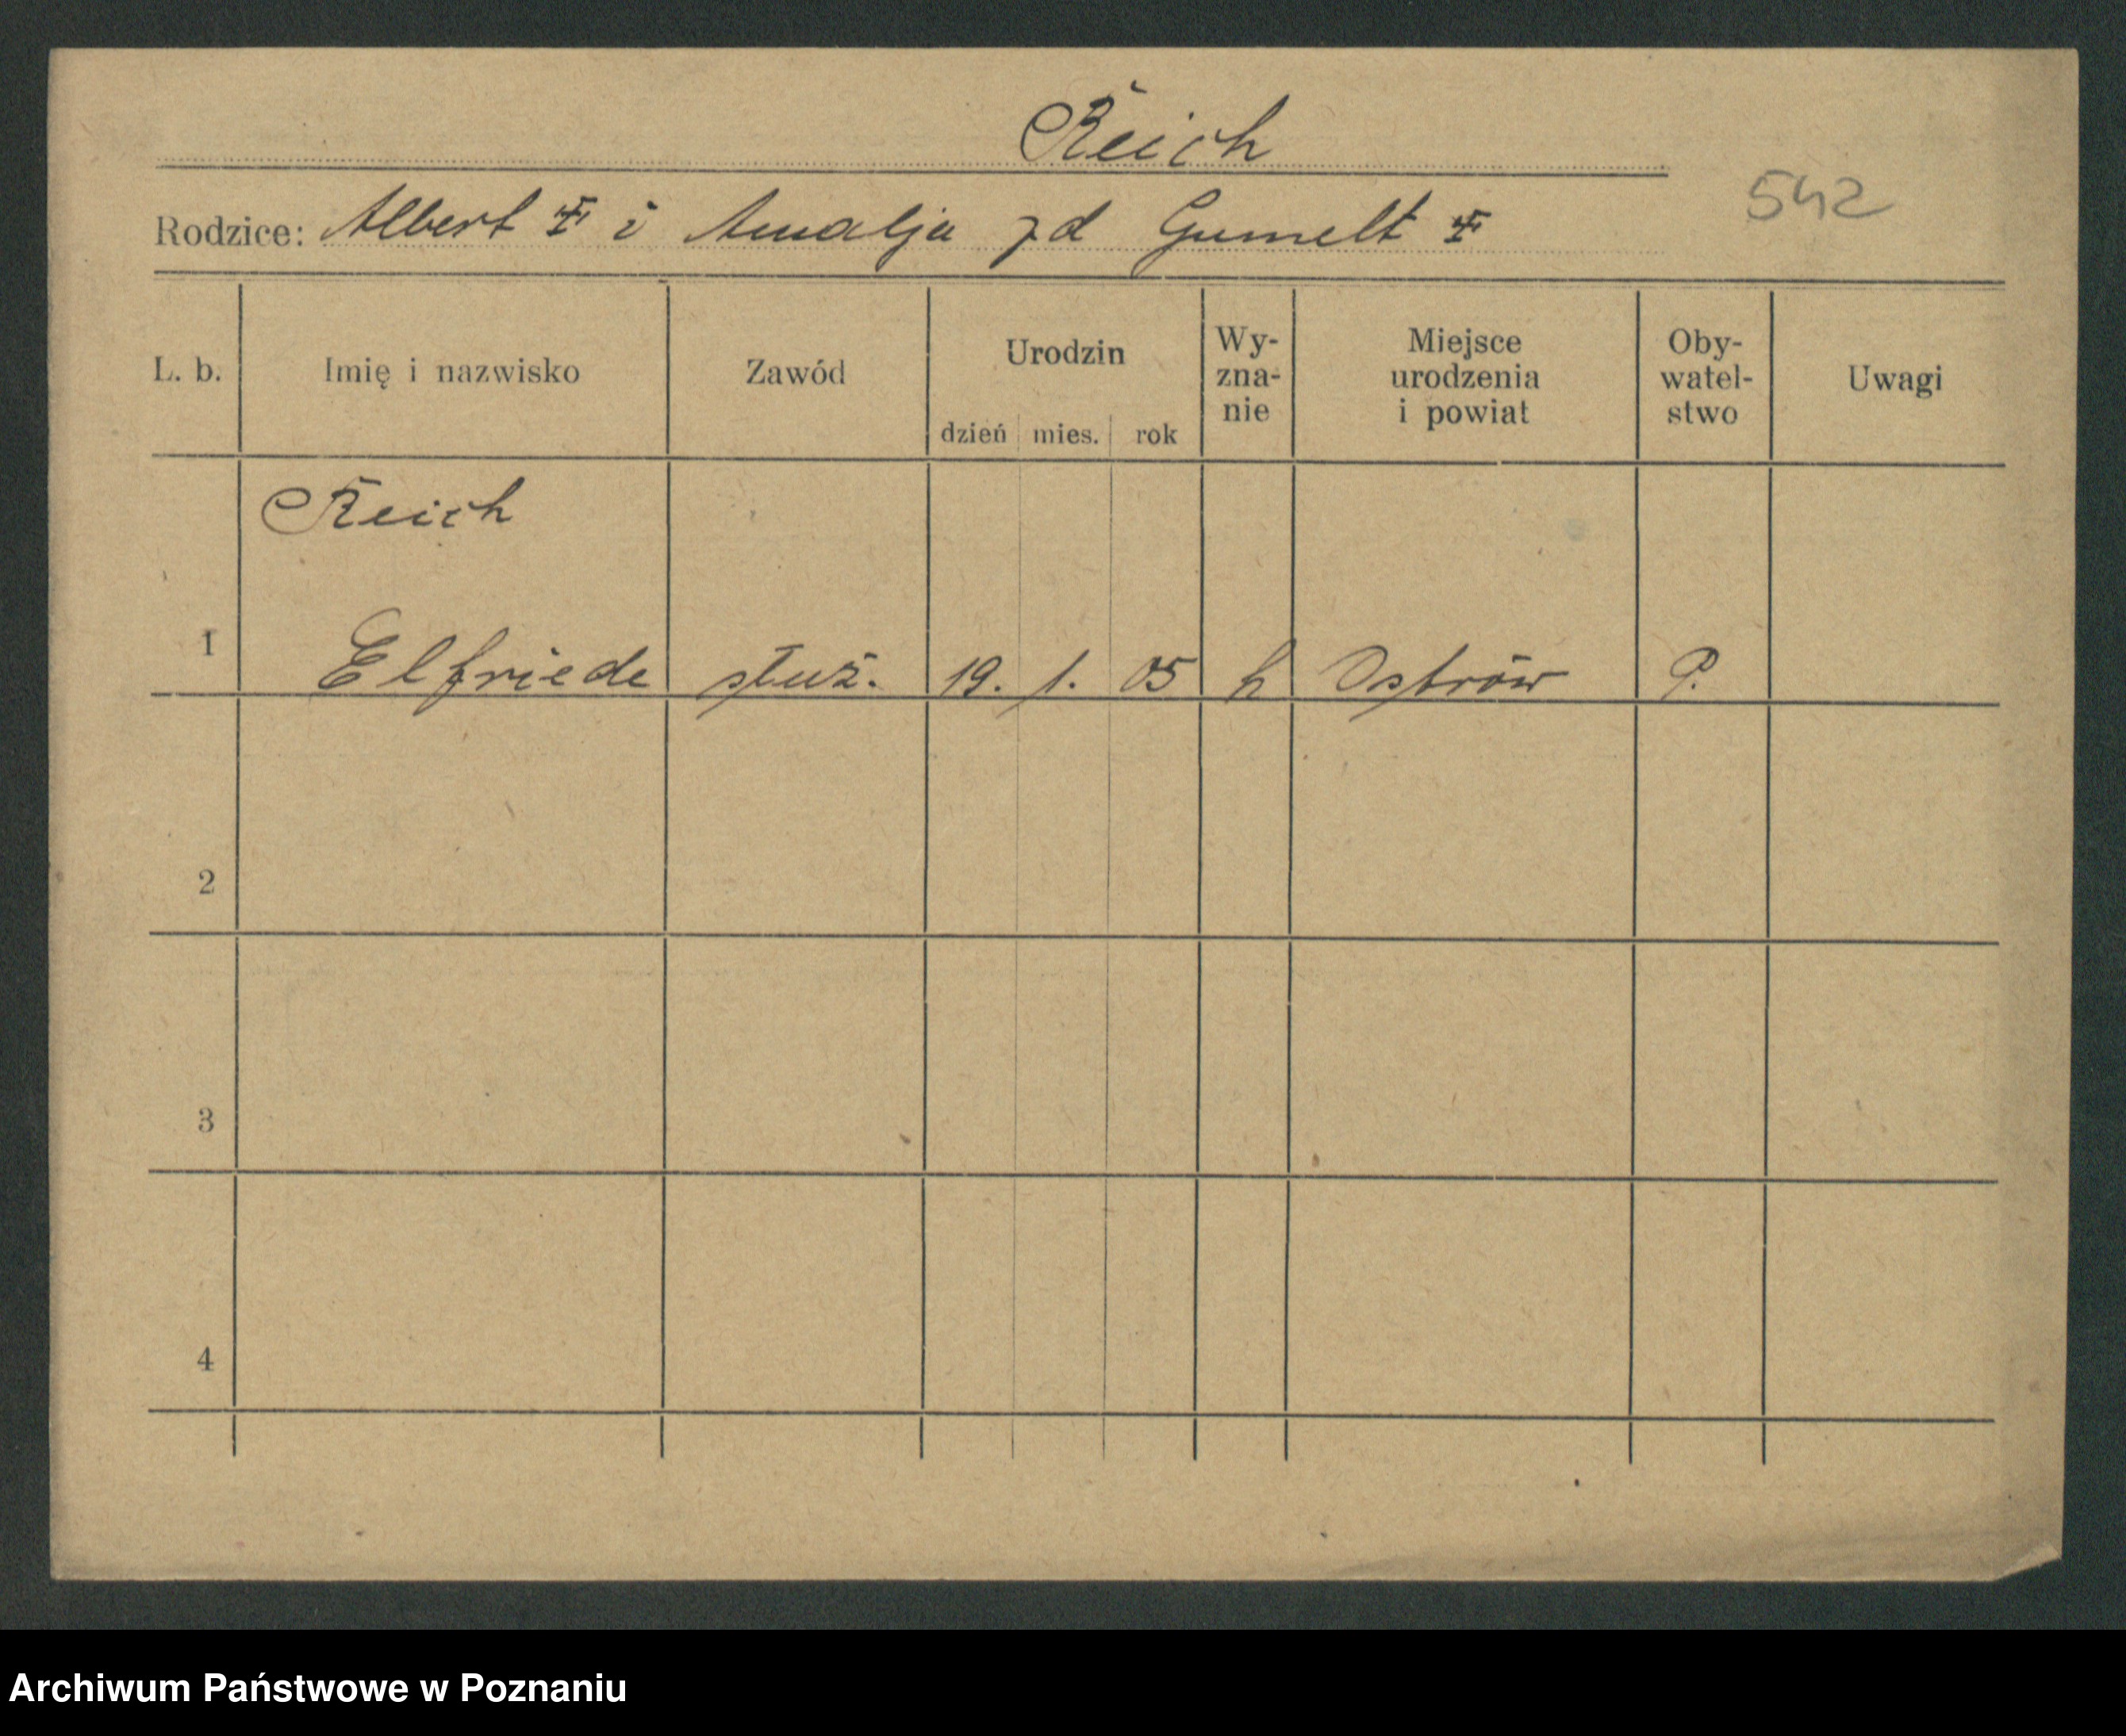 Reich
542
Rodzice: Albert i Amalja zd Gumelt
L. b.
Imię i nazwisko
Zawód
Urodzin
dzień mies. rok
Wy-
zna-
nie
Miejsce
urodzenia
i powiat
Oby-
watel-
stwo
Uwagi
Reich
1 Elfriede służ. 19. 1. 05 h Ostrów P.
2
3
4
Archiwum Państwowe w Poznaniu